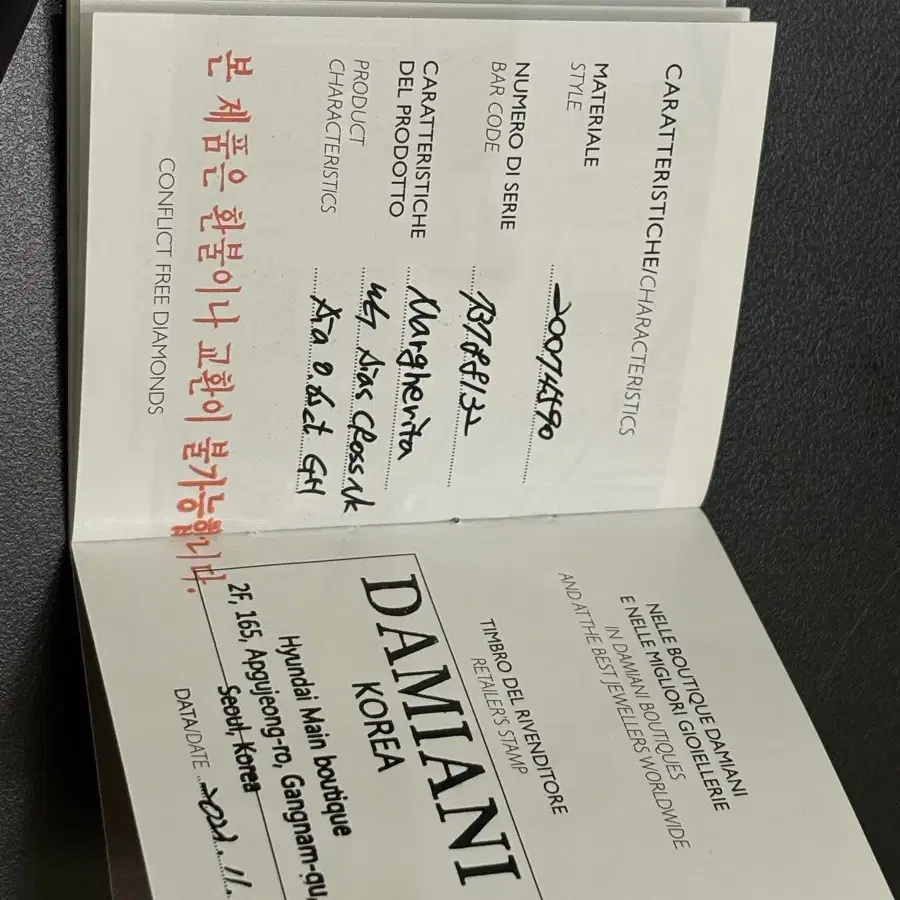 CARATTERISTICHE/CHARACTERISTICS
MATERIALE
STYLE
20074590
NUMERO DI SERIE
BAR CODE
CARATTERISTICHE
DEL PRODOTTO
Margherita
PRODUCT
CHARACTERISTICS
WG Dias CRoss Nk
Dia GH
본 제품은 환불이나 교환이 불가능합니다.
CONFLICT FREE DIAMONDS
NELLE BOUTIQUE DAMIANI
E NELLE MIGLIORI GIOIELLERIE
IN DAMIANI BOUTIQUES
AND AT THE BEST JEWELLERS WORLDWIDE
TIMBRO DEL RIVENDITORE
RETAILER'S STAMP
DAMIANI
KOREA
Hyundai Main boutique
2F, 165, Apgujeong-ro, Gangnam-gu,
Seoul, Korea
DATA/DATE